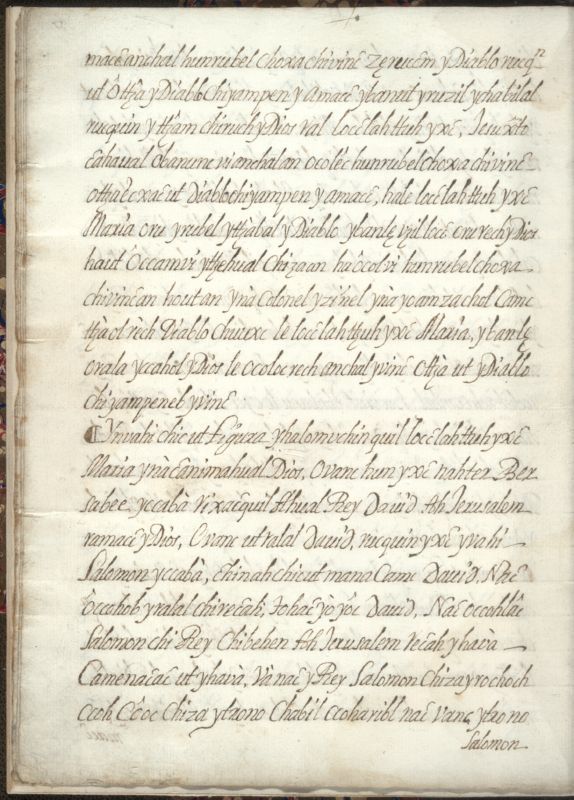 macẽ anchal hunrubel choxa chivinc zęrucem y Diablo rucq̃
ut Ottħa y Diablo Chiyampen y amacẽ ybanut yruzil yrhabilal
rucquin y ttħam chiruch y Dios val locc lahttuh yxc, Jesuxp̃to
cahaual Obanunc vi anchalan ocolec hunrubel choxa chivinc
ottunccxac ut Diablo chiyampen y amacẽ, hale locc lahttuh yxc̃
Maria oru yrubel yttħabal y Diablo ybanlę vzil locc cru rech y Dios
haut Occamvi yttehual Chizaan ha ocolvi hunrubel choxa
chivincan hout an yna Colonel yzihel yna yoamzachol Camc
ttħa ol rech Diablo chuuxc le locc lahttuh yxc Maria, ybanlę
orala yccahol y Dios le ocoloc rech anchal yvinc Ottħa ut y Diablo
chiyampeneb yvinc
Ynvahi chic ut figura yhalomuchinquil locc lahttuh yxc̃
Maria yna canimahual Dios, Ovanc hun yxc̃ nahter Ber
sabee yccaba Rixacquil Ahual Rey Dauid Ah Jerusalem
ramac y Dios, Ovanc ut ralal Dauid, rucquin yxc̃ yvahi
Salomon yccaba, chinahchic ut mama Camc Dauid. Nac
Occahob yralal chirecah, Johac yo yoc Dauid, Nac Occohlac
Salomon chi Rey Chibehen Ah Jerusalem recah yhava
Camenac ac ut yhava, Va nac y Rey Salomon Chiza yrochoch
ccoh Cooc Chiza ytrono Chabil ccoharibl nac vanc ytrono
Salomon